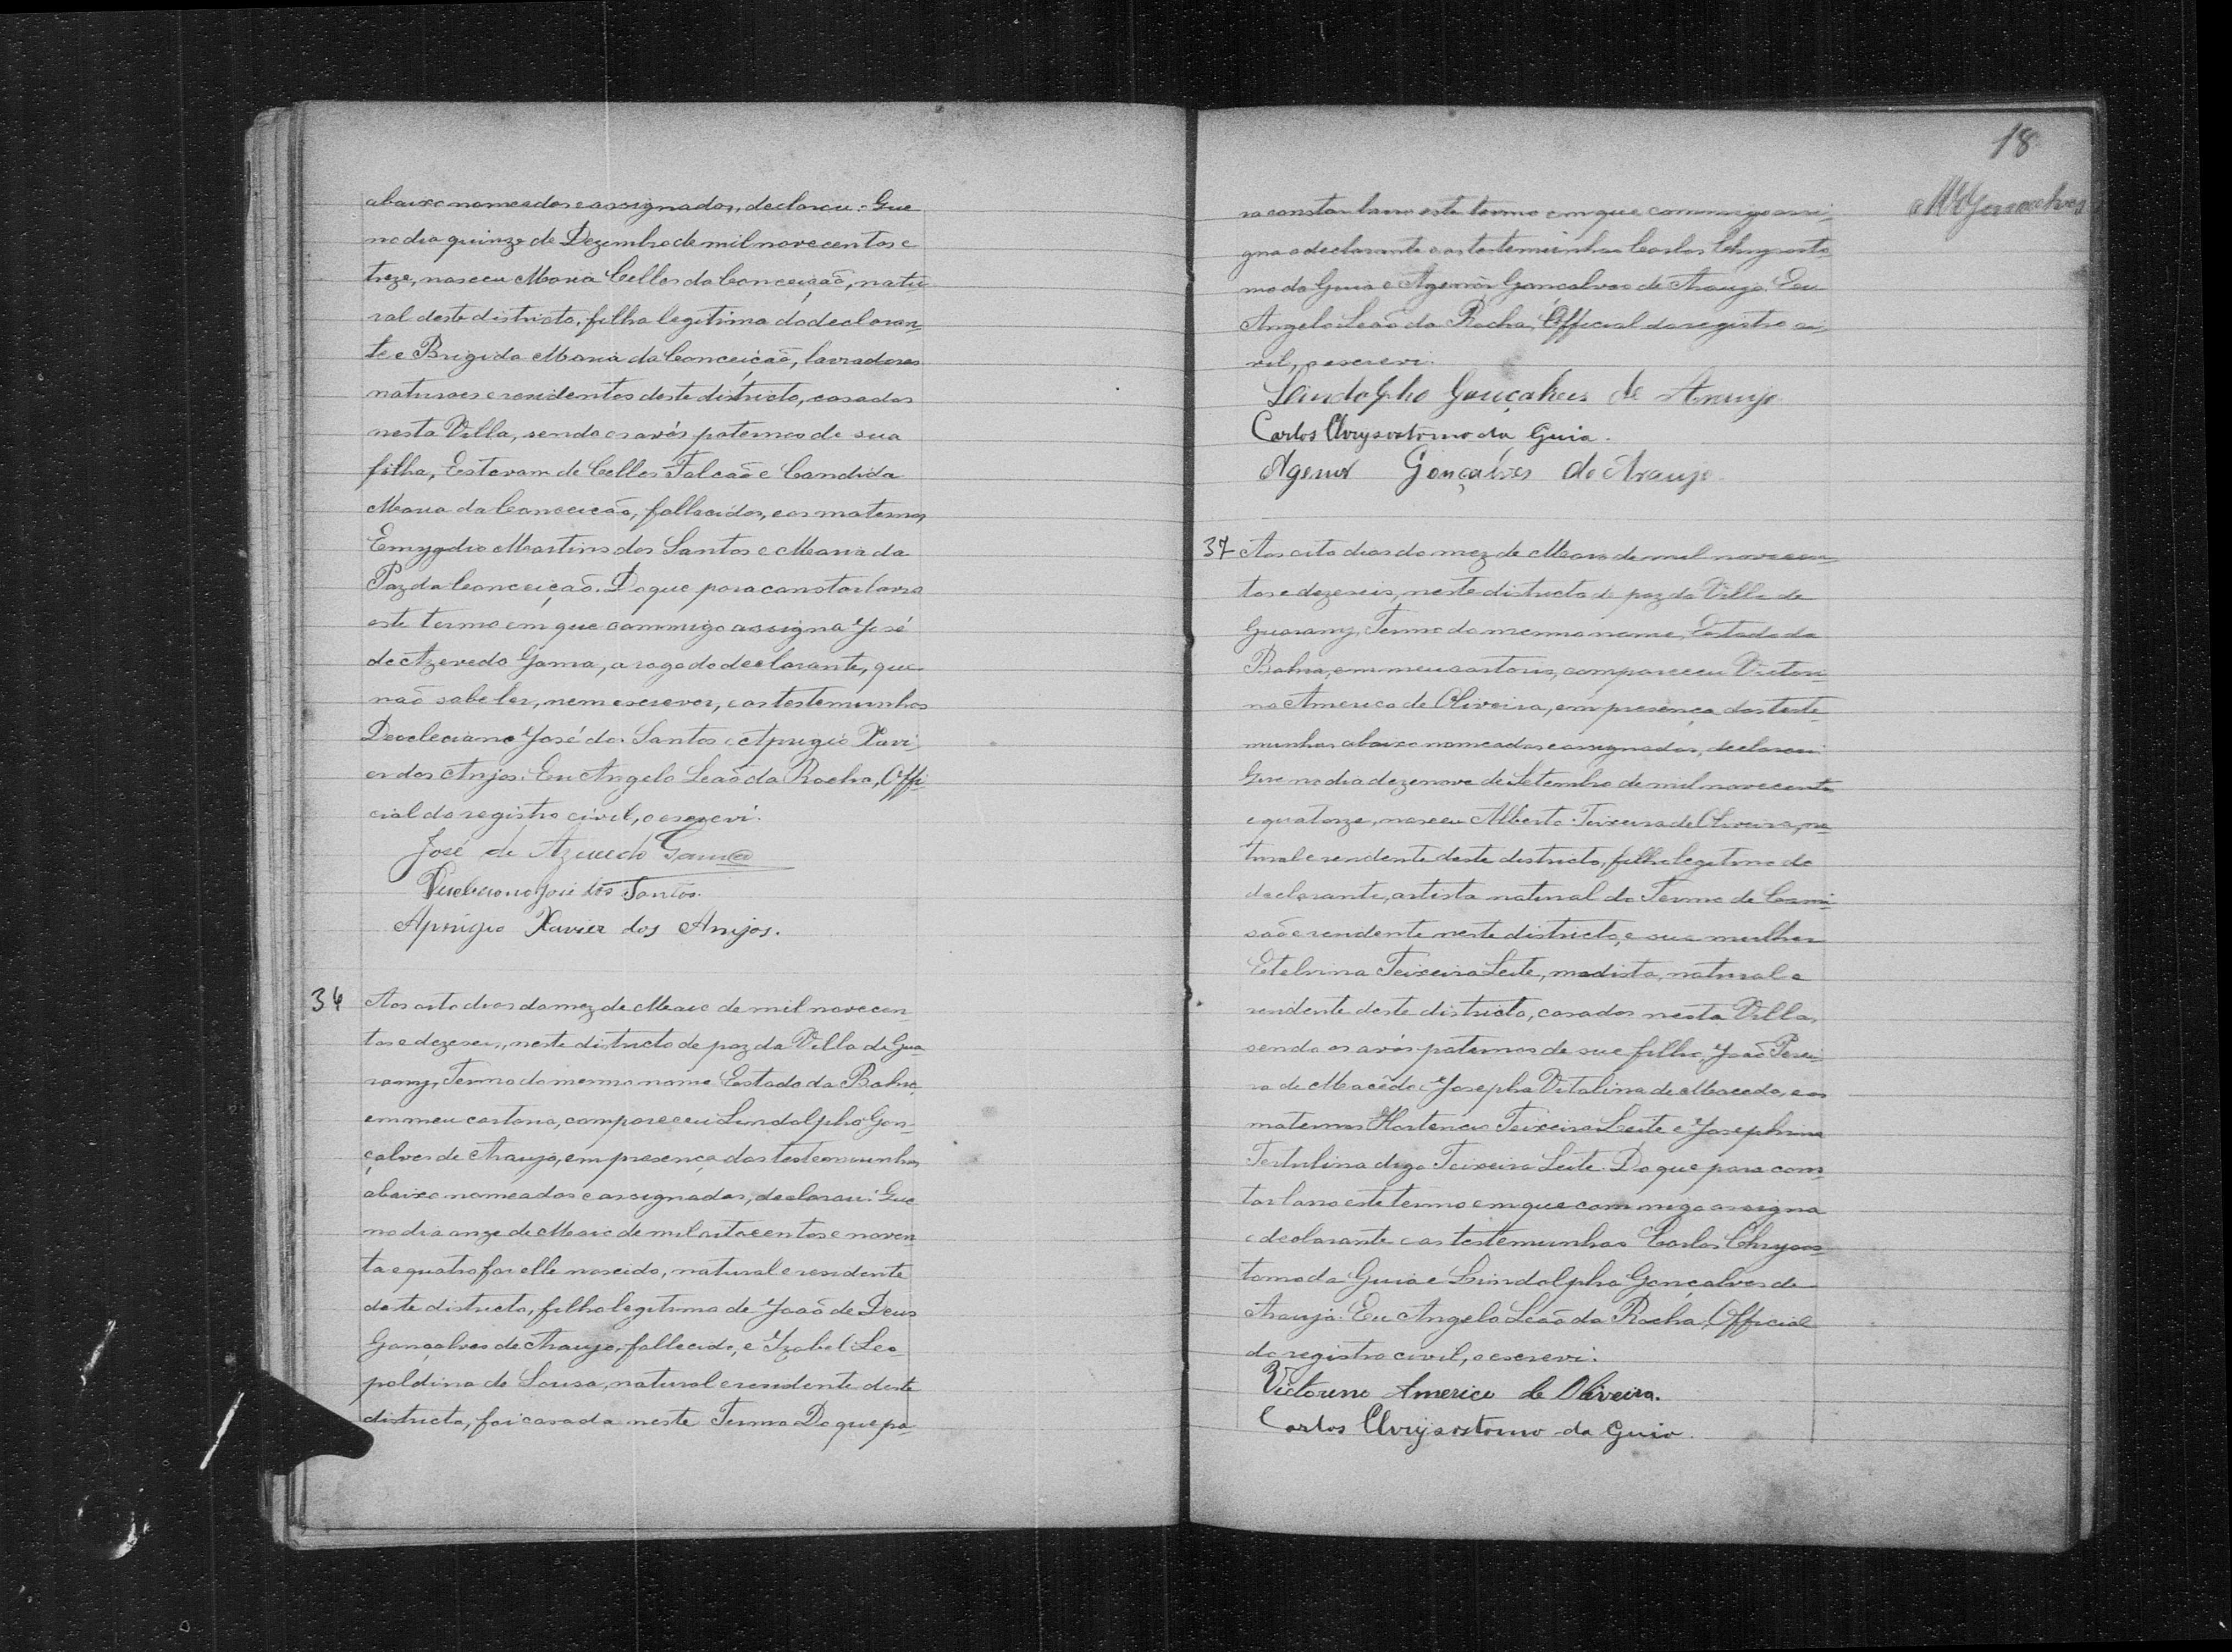 abaixo nomeados e assignados, declarou: Que
no dia quinze de Dezembro de mil novecentos e
treze, nasceu Maria Celles da Conceição, natu
ral deste districto, filha legitima do declaran
te e Brigida Maria da Conceição, lavradores
naturaes e residentes deste districto, casados
nesta Villa, sendo os avós paternos de sua
filha, Estevam de Celles Falcão e Candida
Maria da Conceição, fallecidos, e os maternos
Emygdio Martins dos Santos e Maria da
Paz da Conceição. Do que para constar lavro
este termo em que commigo assigna José
de Azevedo Gama, a rogo do declarante, que
não sabe ler, nem escrever, e as testemunhas
Deocleciano José dos Santos e Aprigio Xavi
er dos Anjos. Eu Angelo Leão da Rocha, Offi
cial do registro civil, o escrevi.
José de Azevedo Gama
Deocleciano José dos Santos.
Aprigio Xavier dos Anjos.
36 Aos oito dias do mez de Maio de mil novecen
tos e dezeseis, neste districto de paz da Villa de Gua
rany, Termo do mesmo nome Estado da Bahia,
em meu cartorio, compareceu Lindolpho Gon-
çalves de Araujo, em presença das testemunhas
abaixo nomeadas e assignadas, declarou: Que
no dia onze de Maio de mil oitocentos e noven
ta e quatro foi elle nascido, natural e residente
deste districto, filho legitimo de João de Deus
Gonçalves de Araujo, fallecido, e Izabel Leo
poldina de Sousa, natural e residente deste
districto, foi casada neste Termo Do que pa-
18
ra constar lavro este termo em que commigo assi
gna o declarante e as testemunhas Carlos Chrysosto
mo da Guia e Agenor Gonçalves de Araujo. Eu
Angelo Leão da Rocha, Official do registro ci
vil, o escrevi.
Lindolpho Gonçalves de Araujo
Carlos Chrysostomo da Guia.
Agenor Gonçalves de Araujo.
37 Aos oito dias do mez de Maio de mil novecen
tos e dezeseis, neste districto de paz da Villa de
Guarany, Termo do mesmo nome, Estado da
Bahia, em meu cartorio, compareceu Victori
no Americo de Oliveira, em presença das teste
munhas abaixo nomeadas e assignadas, declarou:
Que no dia dezenove de Setembro de mil novecentos
e quatorze, nasceu Alberto Teixeira de Oliveira, na
tural e residente deste districto, filho legitimo do
declarante, artista natural do Termo de
são e residente neste districto, e sua mulher
Etelvina Teixeira Leite, modista, natural e
residente deste districto, casados nesta Villa,
sendo os avós paternos de sue filho, João Perei
ra de Macêdo e Josepha Vitalina de Macedo, e os
maternos Hortencio Teixeira Leite e Josephina
Tertulina digo Teixeira Leite. Do que para cons
tar lavro este termo em que commigo assigna
o declarante e as testemunhas Carlos Chrysos
tomo da Guia e Lindolpho Gonçalves de
Araujo. Eu Angelo Leão da Rocha, Official
do registro civil, o escrevi.
Victorino Americo de Oliveira.
Carlos Chrysostomo da Guia.